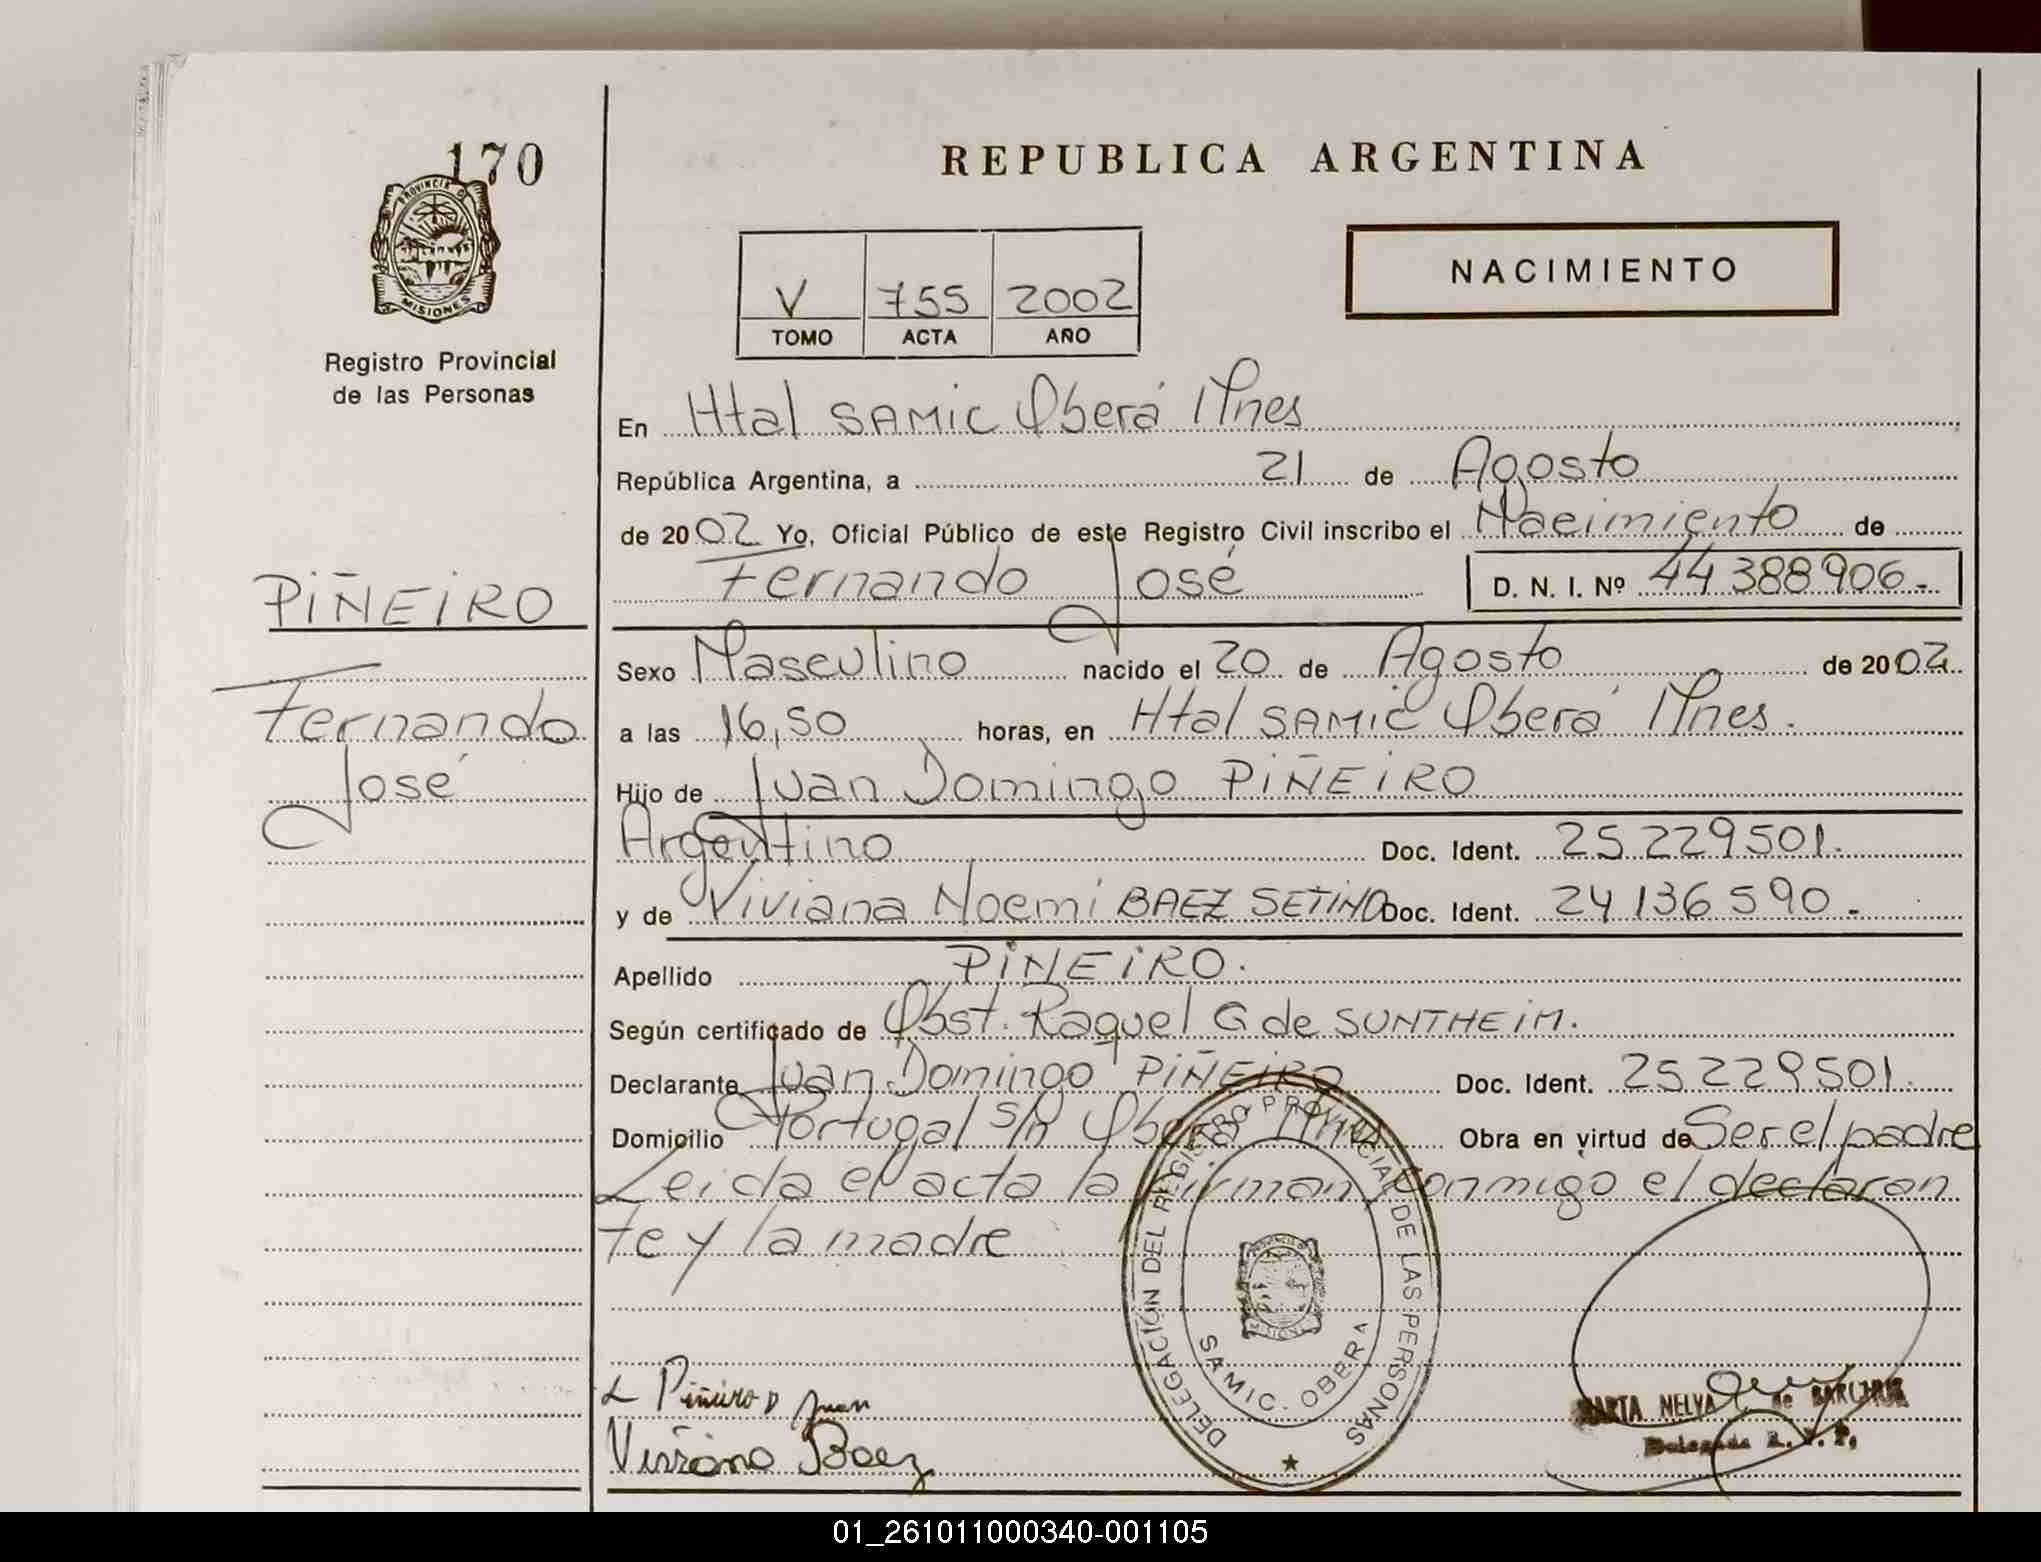 170
PROVINCIA DE
MISIONES
Registro Provincial
de las Personas
PIÑEIRO
Fernando
José
REPUBLICA ARGENTINA
V 755 2002
TOMO ACTA AÑO
NACIMIENTO
En Htal SAMIC Oberá Mnes
República Argentina, a 21 de Agosto
de 2002 Yo, Oficial Público de este Registro Civil inscribo el Nacimiento de
Fernando José D. N. I. Nº 44.388.906.-
Sexo Masculino nacido el 20 de Agosto de 2002
a las 16,50 horas, en Htal SAMIC Oberá Mnes.
Hijo de Juan Domingo PIÑEIRO
Argentino Doc. Ident. 25.229.501.
y de Viviana Noemi BAEZ SETINO Doc. Ident. 24.136.590.
Apellido PIÑEIRO.
Según certificado de Obst. Raquel G de SUNTHEIM.
Declarante Juan Domingo PIÑEIRO Doc. Ident. 25.229.501.
Domicilio Portugal s/n Oberá Mnes Obra en virtud de Ser el padre
Leida el acta la firman conmigo el declaran
te y la madre
DELEGACIÓN DEL REGISTRO PROVINCIAL DE LAS PERSONAS
SAMIC. OBERA
Piñeiro D Juan
Viviana Baez
MARTA NELVA de
Delegada R. P. P.
01_261011000340-001105